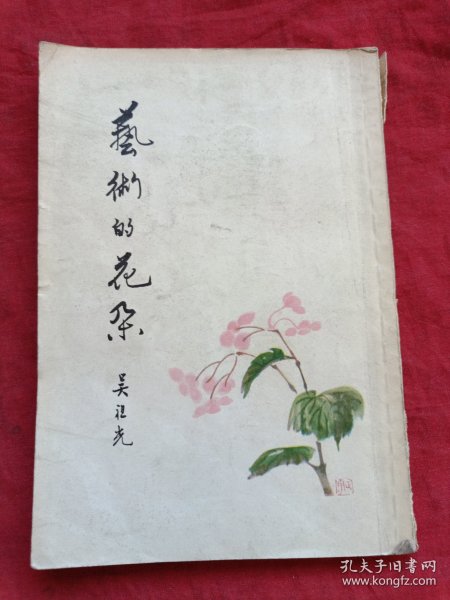 藝術的花朵
吴祖光
孔夫子旧书网
www.kongfz.com